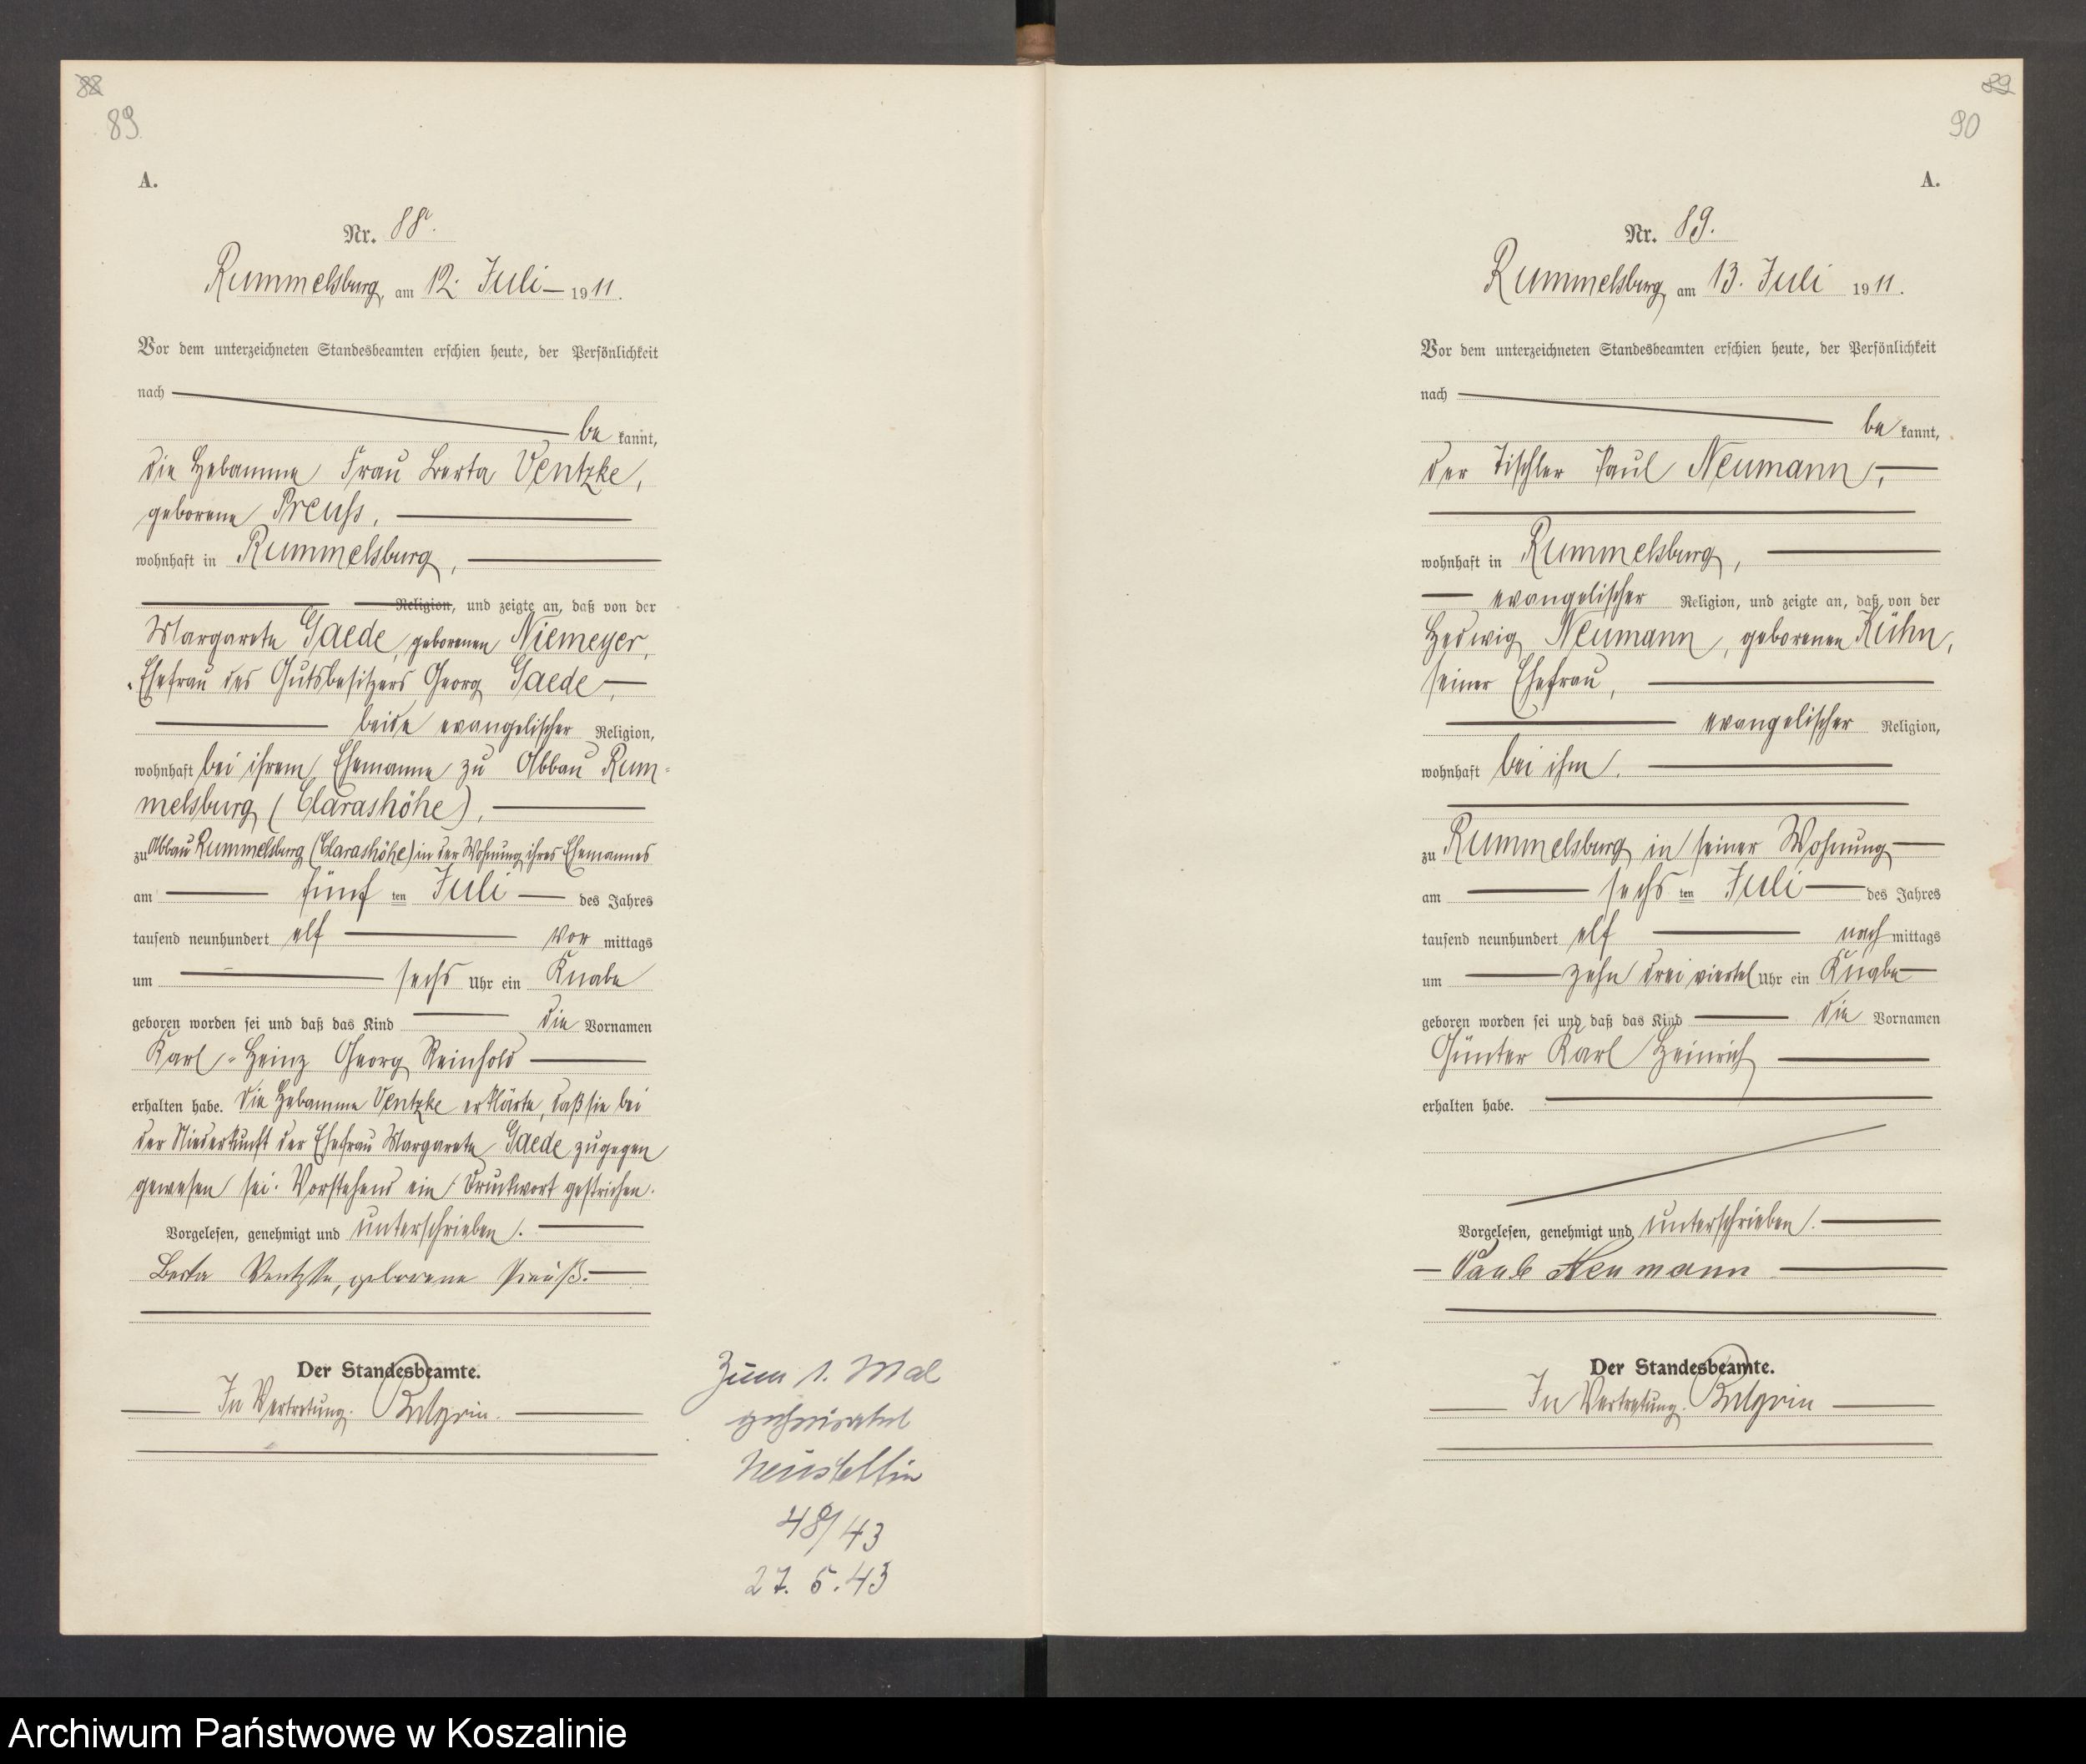 88
89
A.
Nr. 88.
Rummelsburg, am 12. Juli 1911.
Vor dem unterzeichneten Standesbeamten erschien heute, der Persönlichkeit
nach
be kannt,
die Hebamme Frau Berta Ventzke,
geborene Preuss,
wohnhaft in Rummelsburg,
Religion, und zeigte an, daß von der
Margarete Gaede, geborenen Niemeyer,
Ehefrau des Gutsbesitzers Georg Gaede,
beide evangelischer Religion,
wohnhaft bei ihrem Ehemanne zu Abbau Rum-
melsburg (Clarashöhe),
zu Abbau Rummelsburg (Clarashöhe) in der Wohnung ihres Ehemannes
am fünf ten Juli des Jahres
tausend neunhundert elf vor mittags
um sechs Uhr ein Knabe
geboren worden sei und daß das Kind die Vornamen
Karl-Heinz Georg Reinhold
erhalten habe. Die Hebamme Ventzke erklärte, daß sie bei
der Niederkunft der Ehefrau Margarete Gaede zugegen
gewesen sei. Vorstehend ein Druckwort gestrichen.
Vorgelesen, genehmigt und unterschrieben.
Berta Ventzke, geborene Preuß.
Der Standesbeamte.
In Vertretung.
Zum 1. Mal
geheiratet
Neustettin
48/43
27. 5. 43
89
90
A.
Nr. 89.
Rummelsburg am 13. Juli 1911.
Vor dem unterzeichneten Standesbeamten erschien heute, der Persönlichkeit
nach
be kannt,
der Tischler Paul Neumann,
wohnhaft in Rummelsburg,
evangelischer Religion, und zeigte an, daß von der
Hedwig Neumann, geborenen Kühn,
seiner Ehefrau,
evangelischer Religion,
wohnhaft bei ihm.
zu Rummelsburg in seiner Wohnung
am sechs ten Juli des Jahres
tausend neunhundert elf nach mittags
um zehn drei viertel Uhr ein Knabe
geboren worden sei und daß das Kind die Vornamen
Günter Karl Heinrich
erhalten habe.
Vorgelesen, genehmigt und unterschrieben.
Paul Neumann
Der Standesbeamte.
In Vertretung.
Archiwum Państwowe w Koszalinie